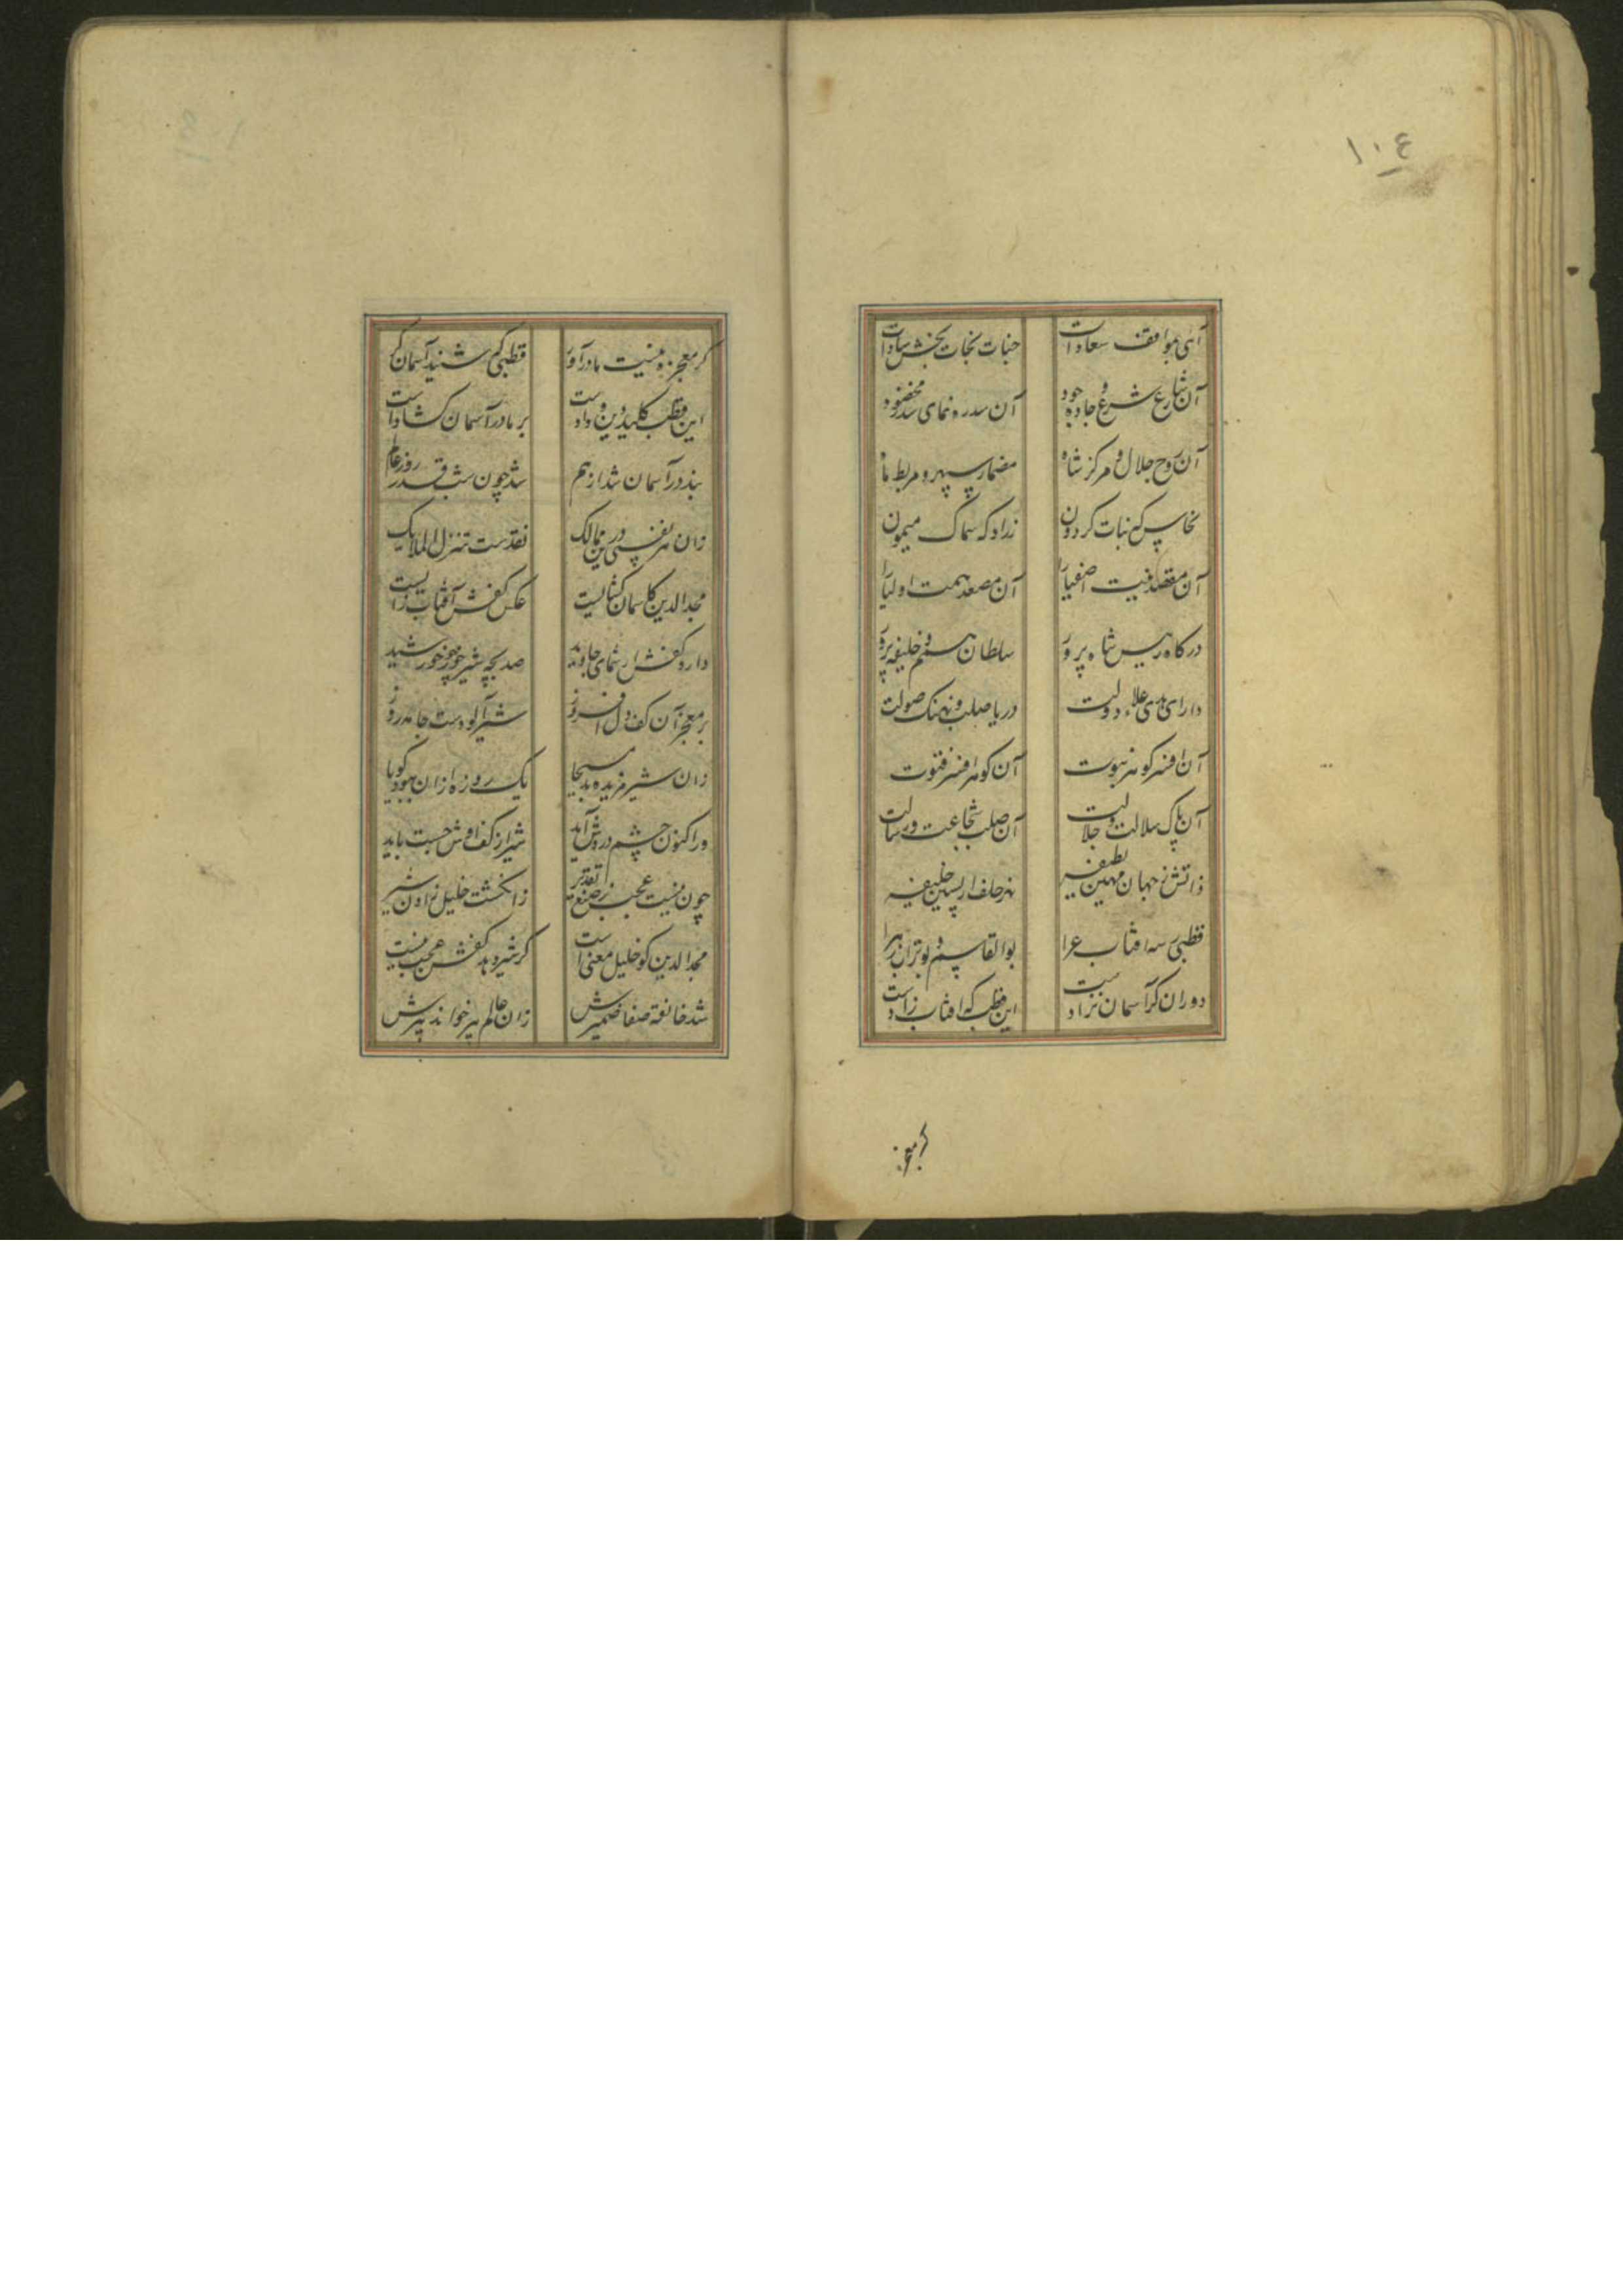 ۱۰۴
آی بموافقف سعادات جنات نجات بخش سادات
آن شارع شرع و جاده جود آن سدره نمای سدر مخضود
آن روح جلال و مرکز شاه مضمار سپهر و مربط ماه
نخاس کمی نبات گردون
آن مقصد نیت اصفیا را آن مصعد همت اولیا را
درگاه رییس شاه پرور سلطان هم و خلیفه پرور
دارای هدی علاء دولت دریا صلب و نهنک صولت
آن افسر گوهر نبوت آن گوهر افسر فتوت
آن پاک سلالت و جلالت آن صلب شجاعت و رسالت
ذاتش ز جهان مهین لطیفه
قطبی سه افتاب عرا بوالقاسم و بوتراب و زهرا
دوران کر آسمان نزادست این قطب که افتاب زادست
کر معجزه
کر معجزه نیست مادرآور قطبی که شنید آسمان کر
این قطب کلید دین و دادست بر ما در آسمان گشادست
بند در آسمان شد از هم شد چون شب قدر روز عالم
زان هر نفسی درین ممالک نقدست تنزل الملایک
مجدالدین کاسمان کنا لیست عکس کفش آفتاب زا لیست
دارد کفش از نمای جاوید صد بچه شیر خور چو خورشید
بر معجز آن کف دل افروز شیر آلودست جامه روز
زان شیر مزیده بد مسیحا یک روزه ازان ببود گویا
ور اکنون چشم دردش آید شیر از کف اوش جست باید
چون نیست عجب ز صنع تقدیر ز انگشت خلیل زادن شیر
مجدالدین کو خلیل معنی است کر شیر دهد کفش عجب نیست
شد خانقه صفا ضمیرش زان عالم پیر خواند پیرش